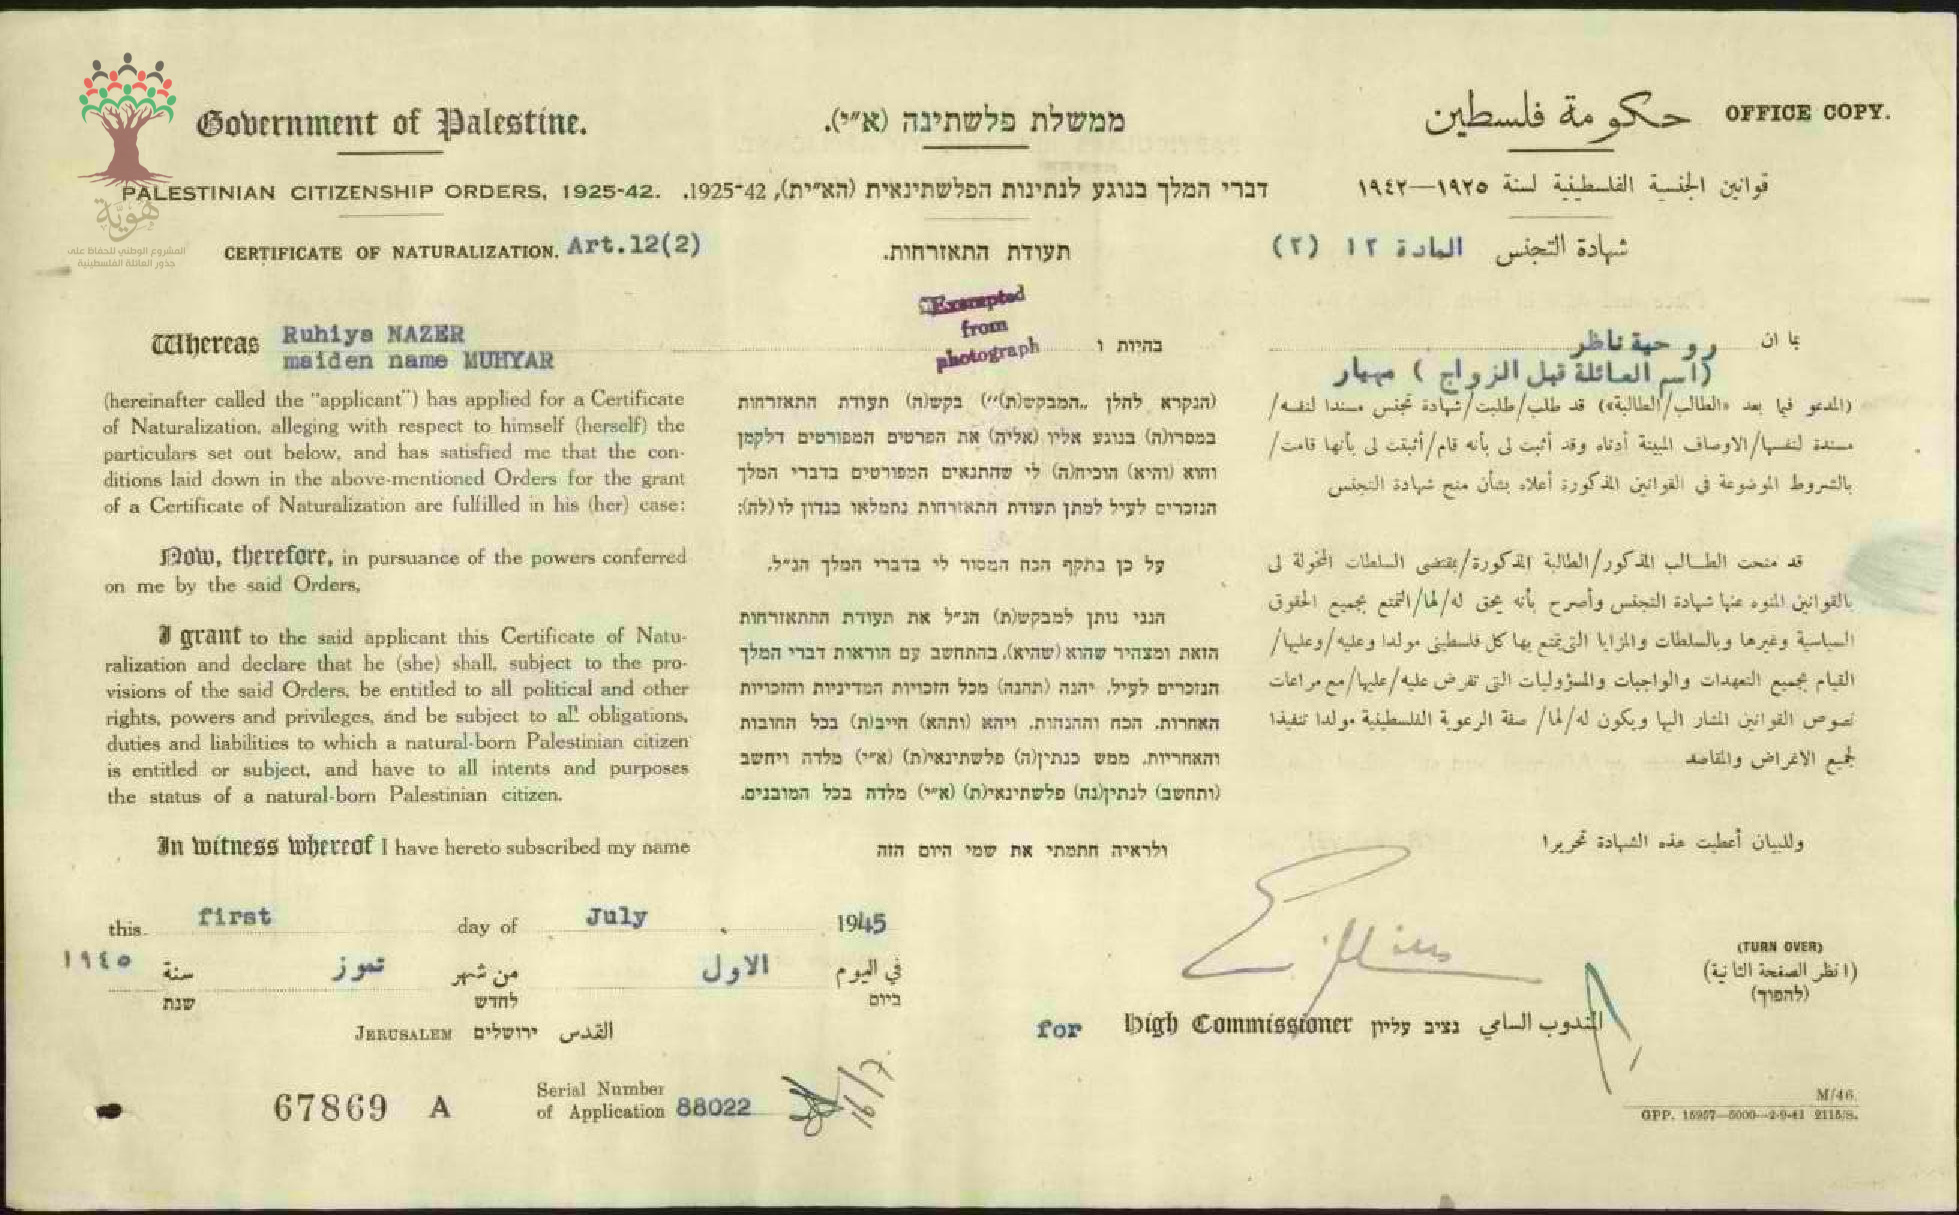 Government of Palestine.
ממשלת פלשתינה (א״י).
حكومة فلسطين
OFFICE COPY.
PALESTINIAN CITIZENSHIP ORDERS, 1925-42.
דברי המלך בנוגע לנתינות הפלשתינאית (הא״ית), 1925-42.
قوانين الجنسية الفلسطينية لسنة ١٩٢٥—١٩٤٢
هوية
المشروع الوطني للحفاظ على
جذور العائلة الفلسطينية
CERTIFICATE OF NATURALIZATION. Art.12(2)
תעודת התאזרחות.
شهادة التجنس المادة ١٢ (٢)
Exempted
from
photograph
Whereas Ruhiya NAZER
maiden name MUHYAR
(hereinafter called the "applicant") has applied for a Certificate
of Naturalization, alleging with respect to himself (herself) the
particulars set out below, and has satisfied me that the con-
ditions laid down in the above-mentioned Orders for the grant
of a Certificate of Naturalization are fulfilled in his (her) case:
Now, therefore, in pursuance of the powers conferred
on me by the said Orders,
I grant to the said applicant this Certificate of Natu-
ralization and declare that he (she) shall, subject to the pro-
visions of the said Orders, be entitled to all political and other
rights, powers and privileges, and be subject to all obligations,
duties and liabilities to which a natural-born Palestinian citizen
is entitled or subject, and have to all intents and purposes
the status of a natural-born Palestinian citizen.
In witness whereof I have hereto subscribed my name
בהיות ו
(הנקרא להלן „המבקש(ת)״) בקש(ה) תעודת התאזרחות
במסרו(ה) בנוגע אליו (אליה) את הפרטים המפורטים דלקמן
והוא (והיא) הוכיח(ה) לי שהתנאים המפורטים בדברי המלך
הנזכרים לעיל למתן תעודת התאזרחות נתמלאו בנדון לו (לה):
על כן בתקף הכח המסור לי בדברי המלך הנ״ל,
הנני נותן למבקש(ת) הנ״ל את תעודת ההתאזרחות
הזאת ומצהיר שהוא (שהיא), בהתחשב עם הוראות דברי המלך
הנזכרים לעיל, יהנה (תהנה) מכל הזכויות המדיניות והזכויות
האחרות, הכח וההנחות, ויהא (ותהא) חייב(ת) בכל החובות
והאחריות, ממש כנתין(ה) פלשתינאי(ת) (א״י) מלדה ויחשב
(ותחשב) לנתין(נה) פלשתינאי(ת) (א״י) מלדה בכל המובנים.
ולראיה חתמתי את שמי היום הזה
بما ان روحية ناظر
(اسم العائلة قبل الزواج) مهيار
(المدعو فيما بعد «الطالب/الطالبة») قد طلب/طلبت/شهادة تجنس مسندا لنفسه/
مسندة لنفسها/الاوصاف المبينة أدناه وقد أثبت لى بأنه قام/أثبتت لى بأنها قامت/
بالشروط الموضوعة في القوانين المذكورة أعلاه بشأن منح شهادة التجنس
قد منحت الطالب المذكور/الطالبة المذكورة/بمقتضى السلطات المخولة لى
بالقوانين المنوه عنها شهادة التجنس وأصرح بأنه يحق له/لها/التمتع بجميع الحقوق
السياسية وغيرها وبالسلطات والمزايا التى يتمتع بها كل فلسطيني مولدا وعليه/وعليها/
القيام بجميع التعهدات والواجبات والمسؤوليات التى تفرض عليه/عليها/مع مراعات
نصوص القوانين المشار اليها ويكون له/لها/ صفة الرعوية الفلسطينية مولدا تنفيذا
لجميع الاغراض والمقاصد
وللبيان أعطيت هذه الشهادة تحريرا
this first day of July 1945
في اليوم الاول من شهر تموز سنة ١٩٤٥
ביום לחדש שנת
JERUSALEM ירושלים القدس
(TURN OVER)
(انظر الصفحة الثانية)
(להפוך)
for High Commissioner נציב עליון المندوب السامي
67869 A
Serial Number
of Application 88022
16/7
M/46.
GPP. 15957—5000—2-9-41 2115/S.